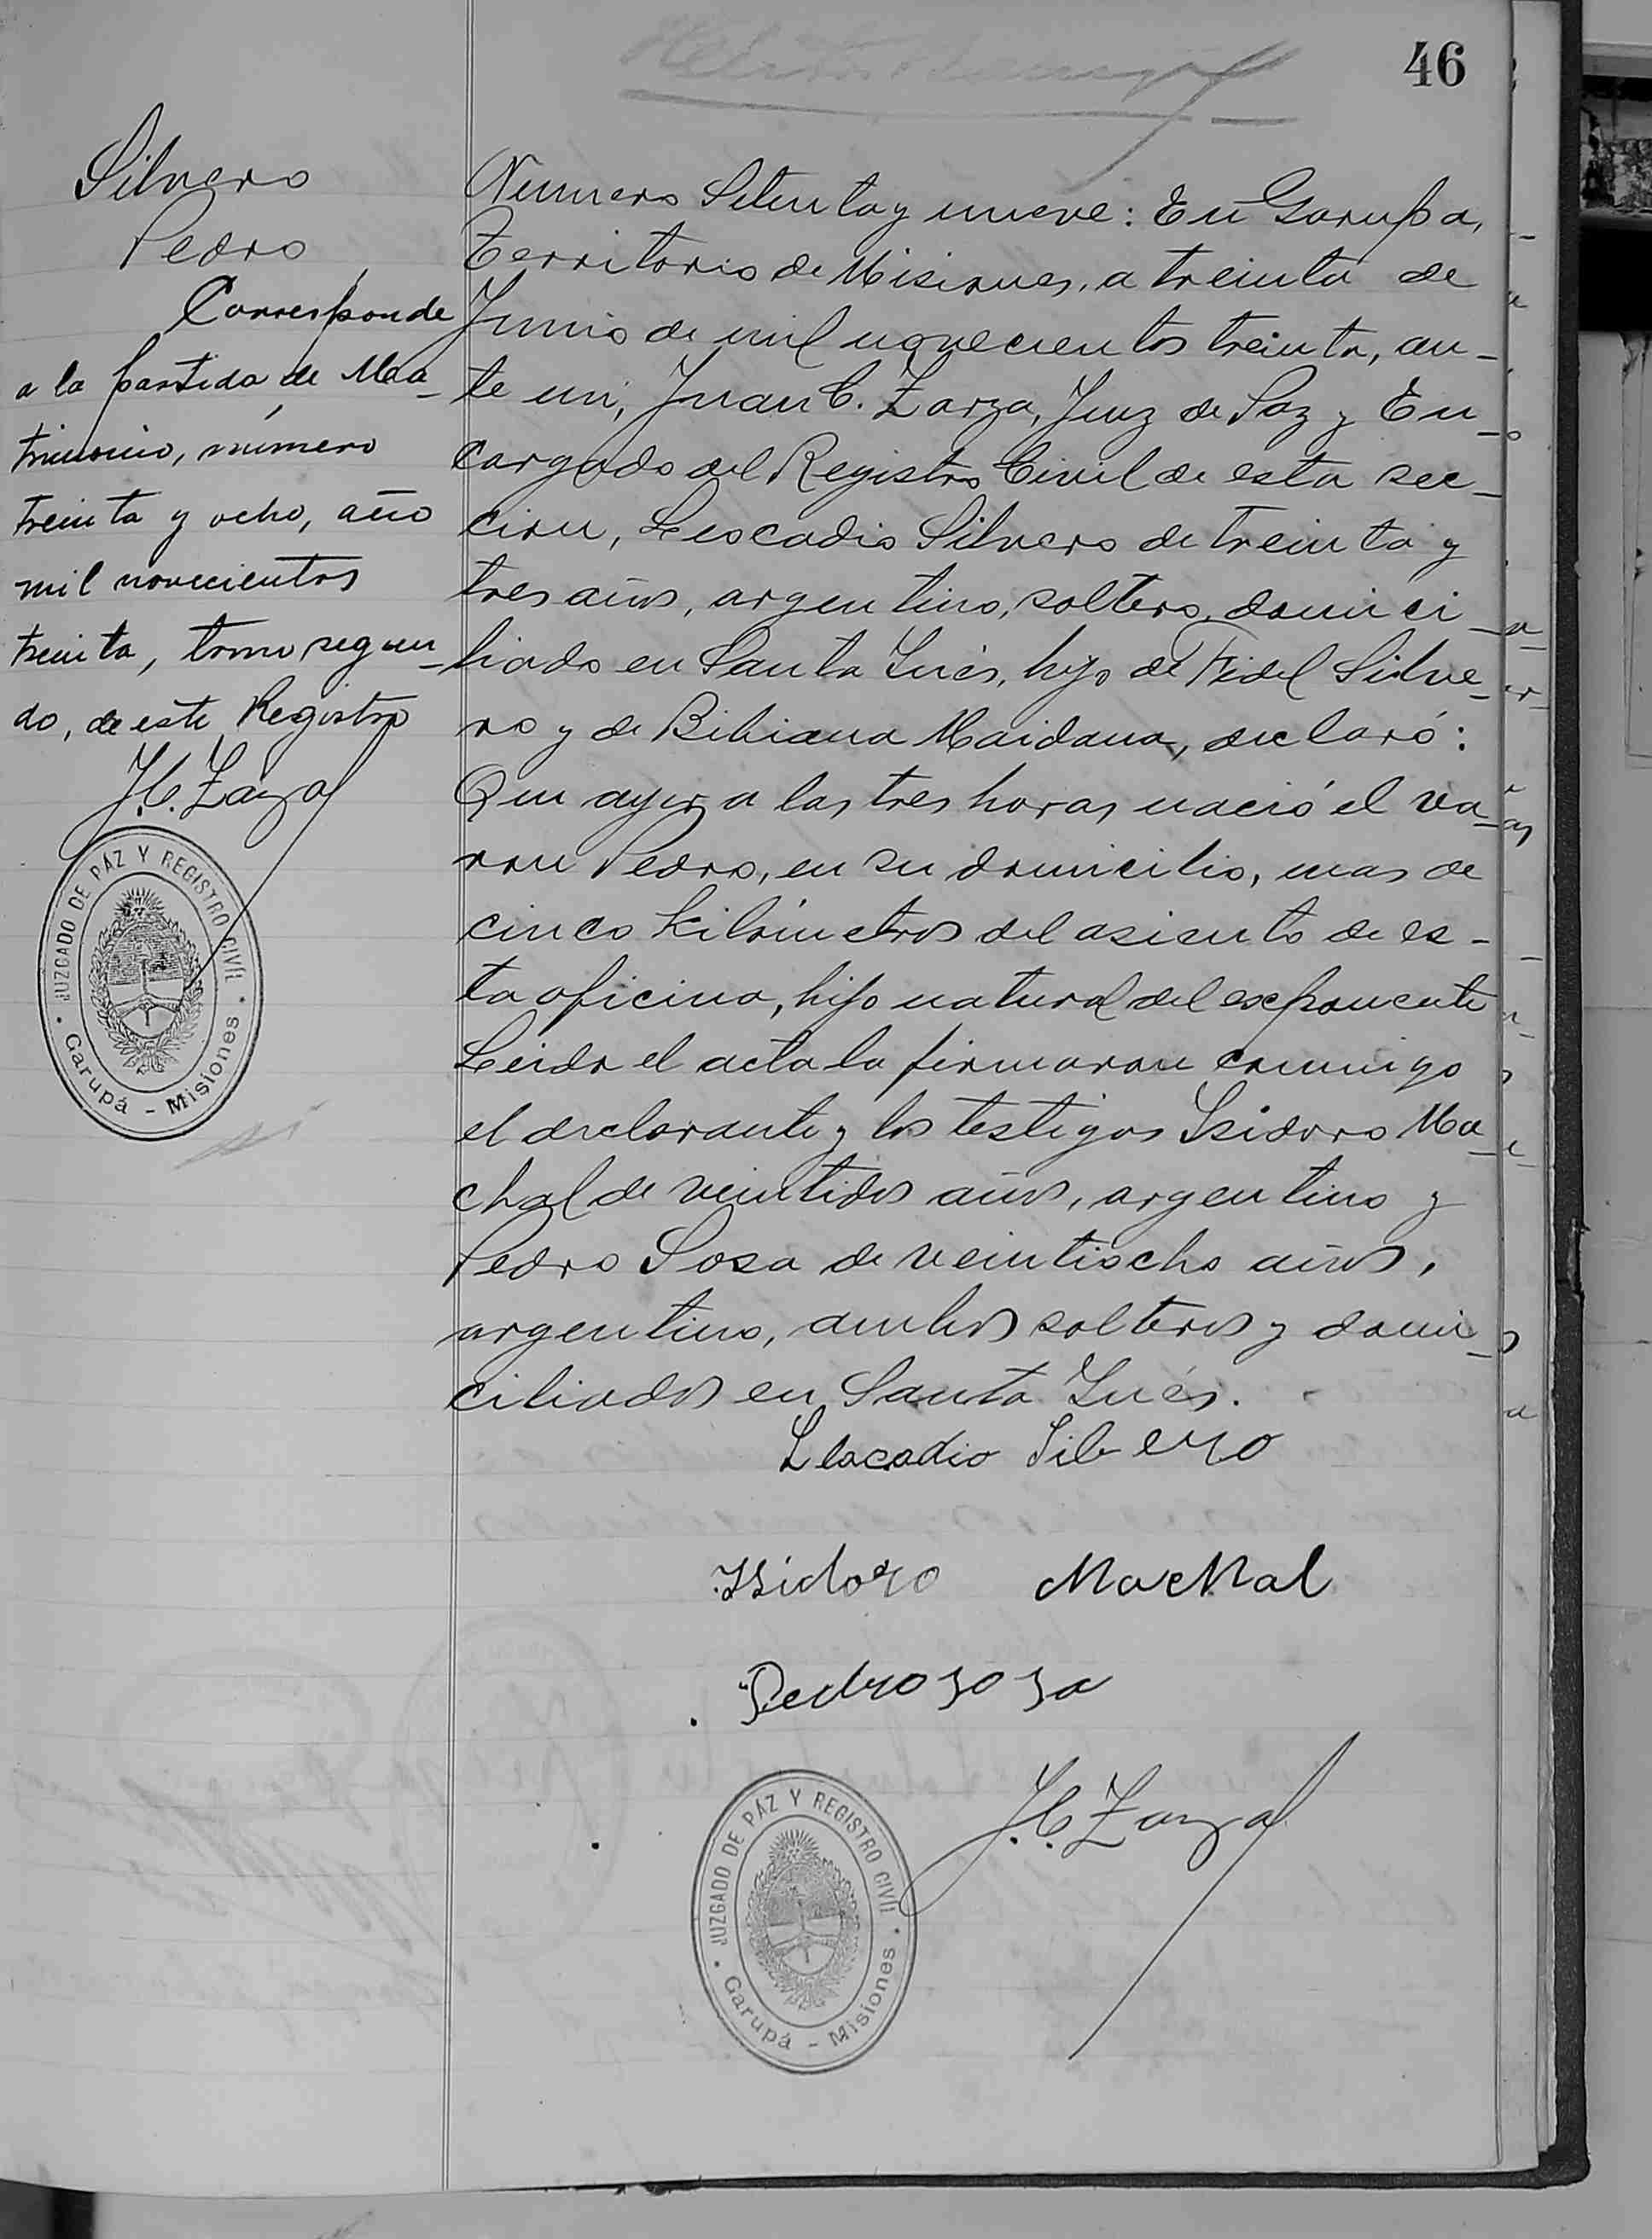 46
Silvero
Pedro
Corresponde
a la partida de Ma-
trimonio, número
treinta y ocho, año
mil novecientos
treinta, tomo segun-
do, de este Registro
J.C. Zarza
JUZGADO DE PAZ Y REGISTRO CIVIL
Garupá - Misiones
Numero Setenta y nueve: En Garupa,
Territorio de Misiones, a treinta de
Junio de mil novecientos treinta, an-
te mi, Juan C. Zarza, Juez de Paz y En-
cargado del Registro Civil de esta sec-
cion, Leocadio Silvero de treinta y
tres años, argentino, soltero, domici-
liado en Santa Inés, hijo de Fidel Silve-
ro y de Bibiana Maidana, declaró:
Que ayer a las tres horas nació el va-
ron Pedro, en su domicilio, mas de
cinco kilómetros del asiento de es-
ta oficina, hijo natural del exponente
Leida el acta la firmaron conmigo
el declarante y los testigos Isidoro Ma-
chal de veintidos años, argentino y
Pedro Sosa de veintiocho años,
argentino, ambos solteros y domi-
ciliados en Santa Inés.
Leocadio Silvero
Isidoro Machal
Pedro Sosa
J.C. Zarza
JUZGADO DE PAZ Y REGISTRO CIVIL
Garupá - Misiones